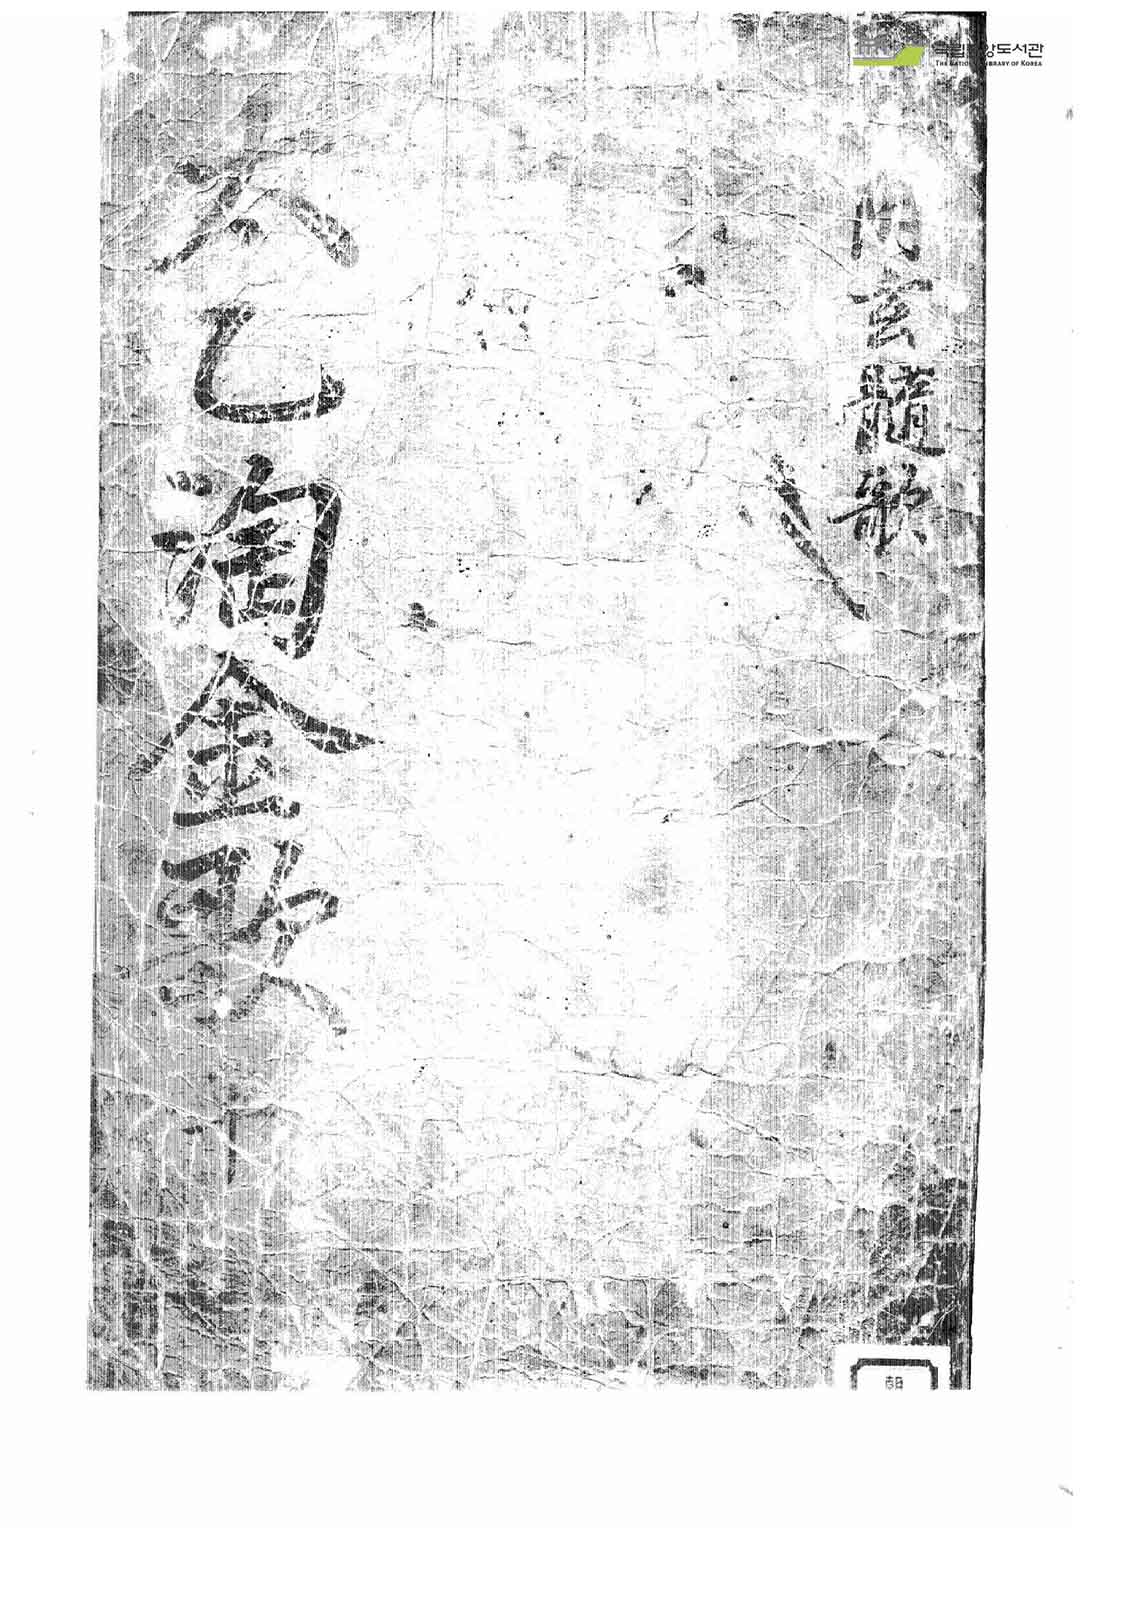 국립중앙도서관
THE NATIONAL LIBRARY OF KOREA
內玄髓歌
太乙淘金歌